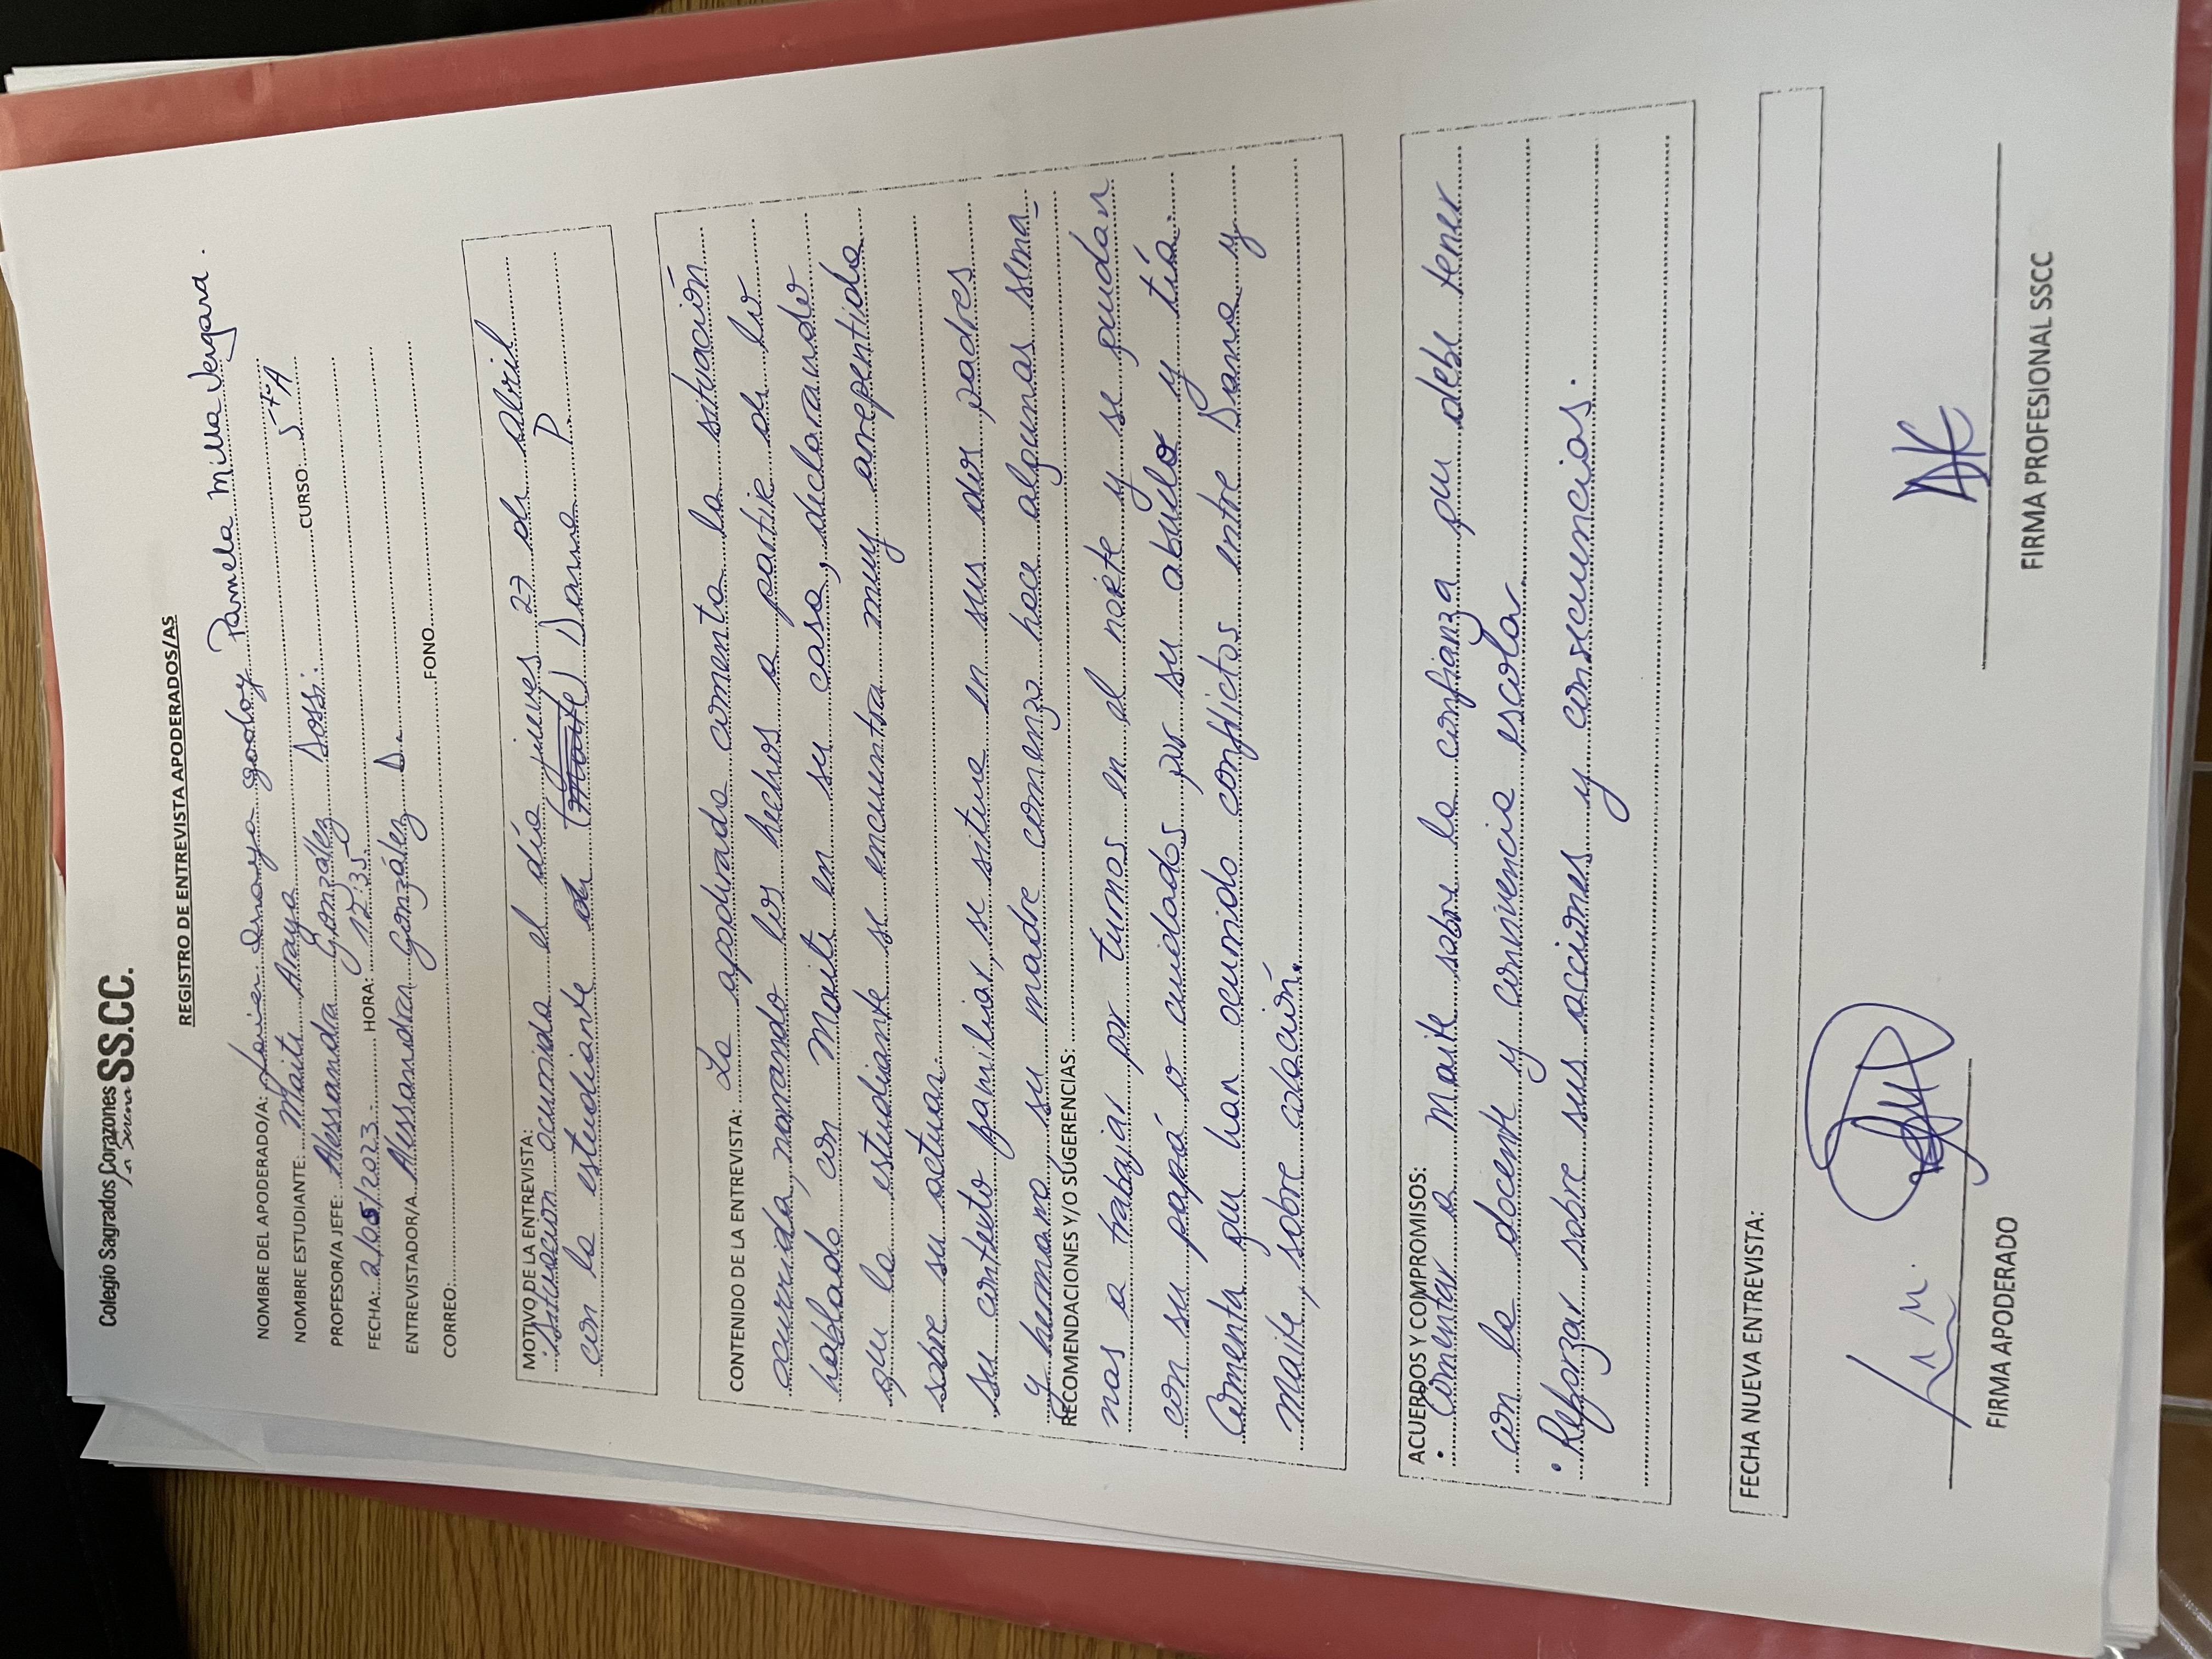 Colegio Sagrados Corazones SS.CC.
La Serena
REGISTRO DE ENTREVISTA APODERADOS/AS
NOMBRE DEL APODERADO/A: Javier Araya Godoy Pamela Milla Vergara.
NOMBRE ESTUDIANTE: Maite Araya Dossi. CURSO: 5°A
PROFESOR/A JEFE: Alessandra González
FECHA: 2/05/2023 HORA: 12:35
ENTREVISTADOR/A Alessandra González D.
CORREO: FONO
MOTIVO DE LA ENTREVISTA:
Situación ocurrida el día jueves 27 de abril
con la estudiante Dana P.
CONTENIDO DE LA ENTREVISTA: La apoderada comenta la situación
ocurrida, narrando los hechos a partir de lo
hablado con Maite en su casa, declarando
que la estudiante se encuentra muy arrepentida
sobre su actuar.
su contexto familiar, se situa en sus dos padres
y hermana, su madre comenzo hace algunas sema-
RECOMENDACIONES Y/O SUGERENCIAS:
nas a trabajar por turnos en el norte y se quedan
con su papá o cuidados por su abuelo y tía.
Comenta que han ocurrido conflictos entre Dana y
Maite, sobre colación.
ACUERDOS Y COMPROMISOS:
• Comentar a Maite sobre la confianza que debe tener
con la docente y convivencia escolar.
• Reforzar sobre sus acciones y consecuencias.
FECHA NUEVA ENTREVISTA:
FIRMA APODERADO
FIRMA PROFESIONAL SSCC